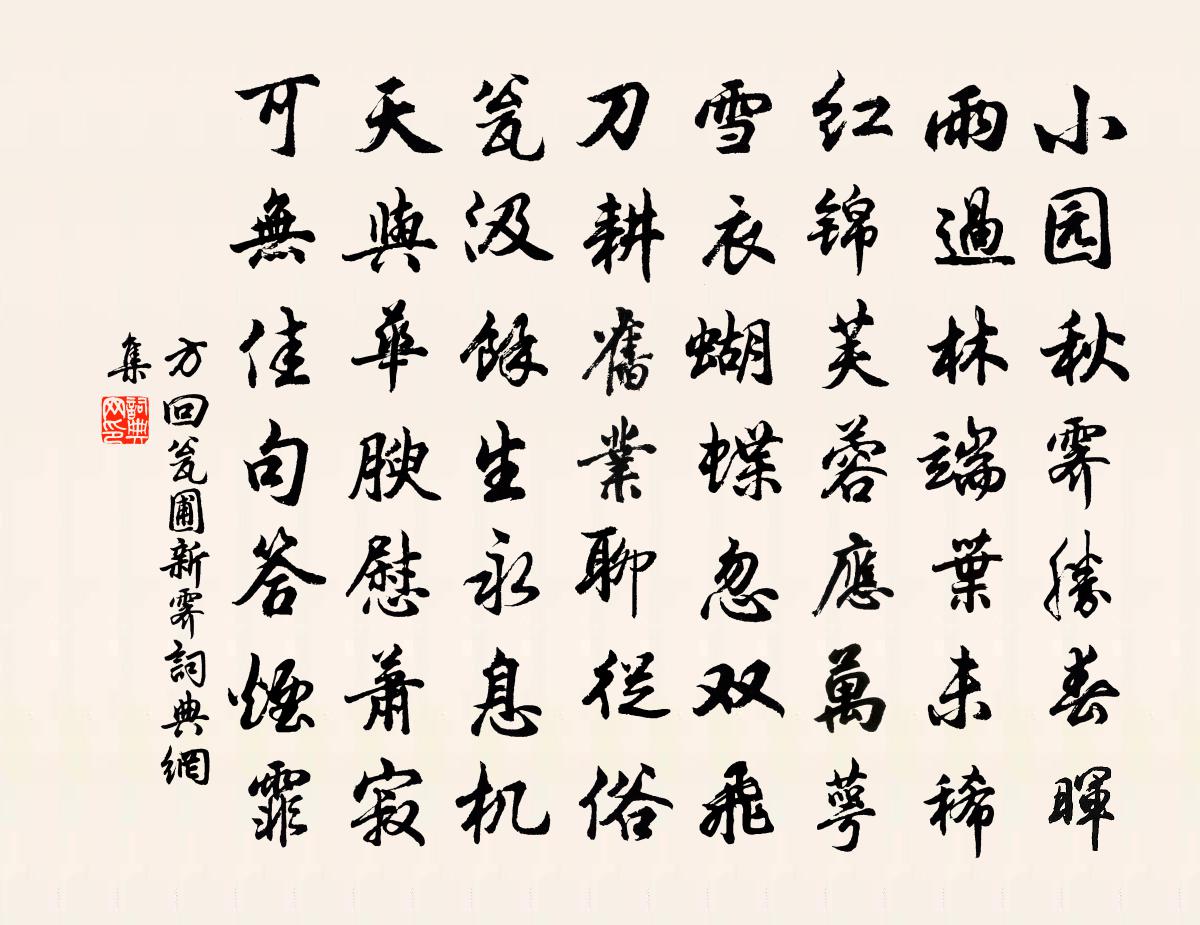 小园秋霁勝春暉
雨過林端葉未稀
红锦芙蓉應萬萼
雪衣蝴蝶忽双飛
刀耕舊業聊從俗
瓮汲餘生永息机
天與華腴慰萧寂
可無佳句答煙霏
方回瓮圃新霁詞典網
集
詞典网印